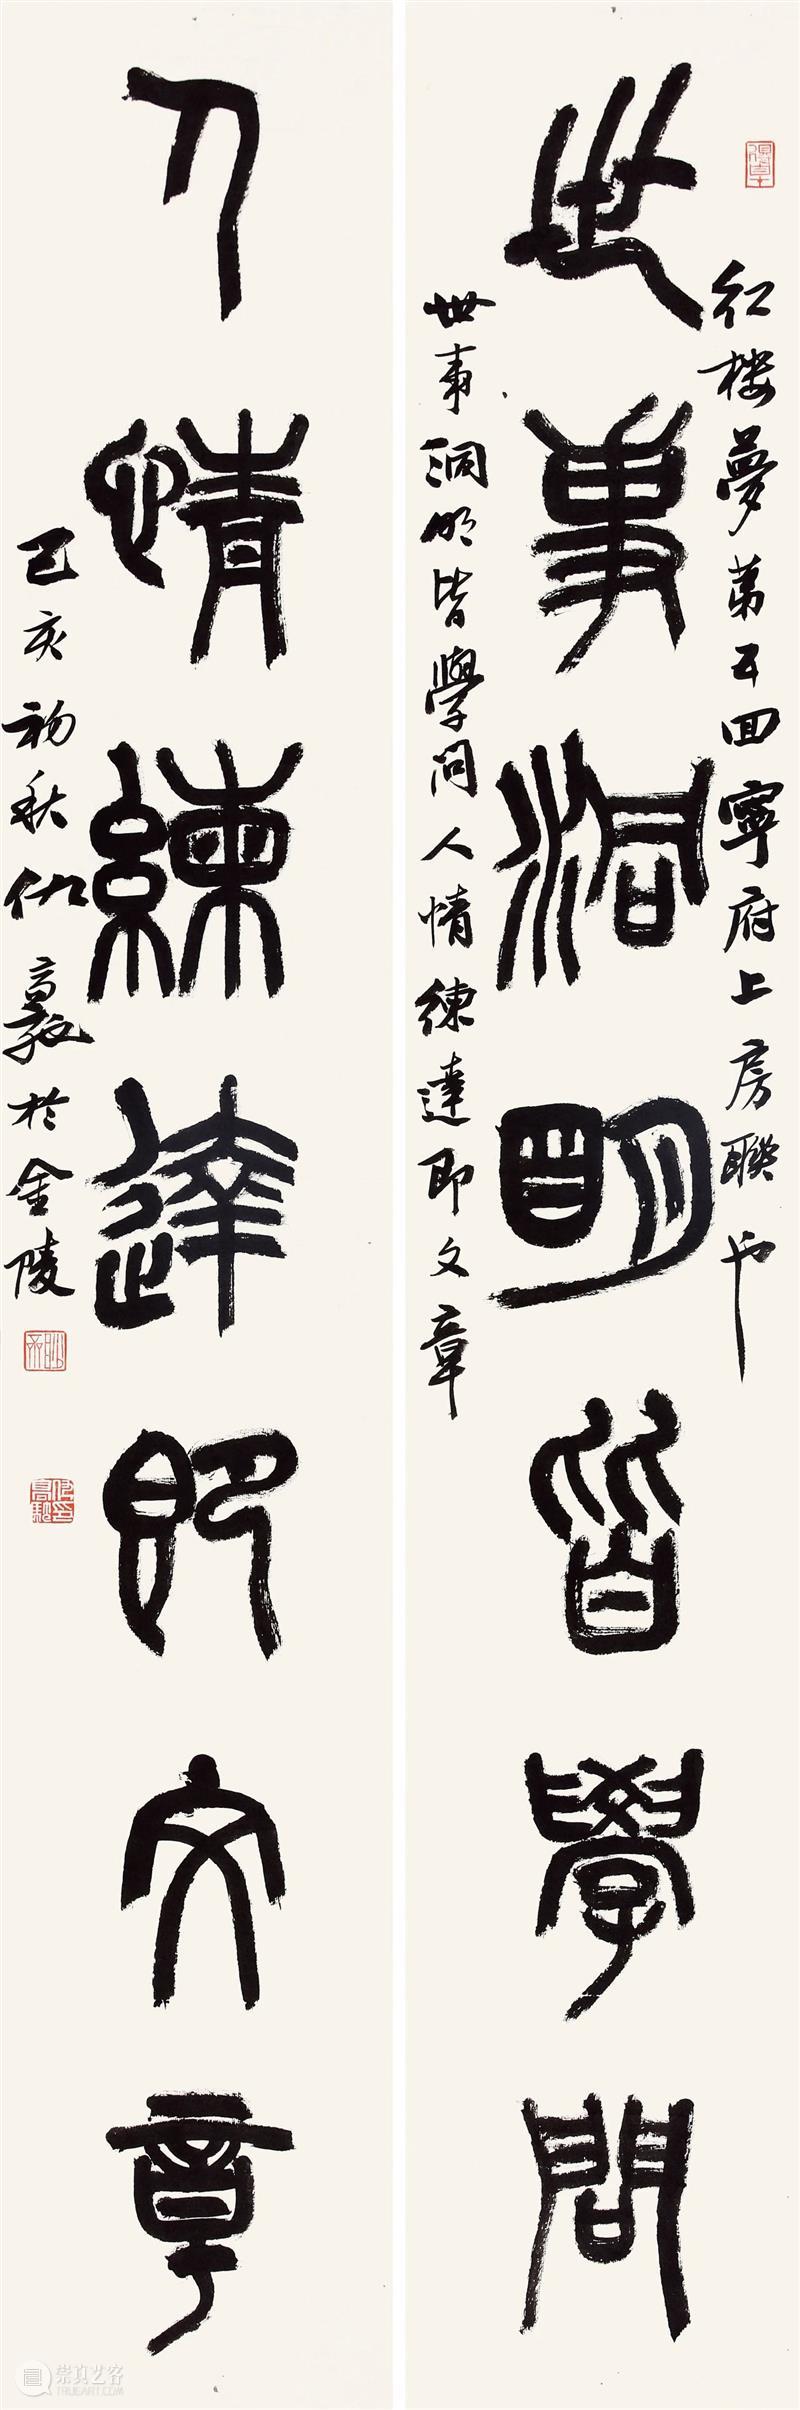 世事洞明皆學問
人情練達即文章
红楼夢第五回寧府上房聯也
世事洞明皆學問人情練達即文章
己亥初秋仇高驰於金陵
崇真艺客
TRUEART.COM